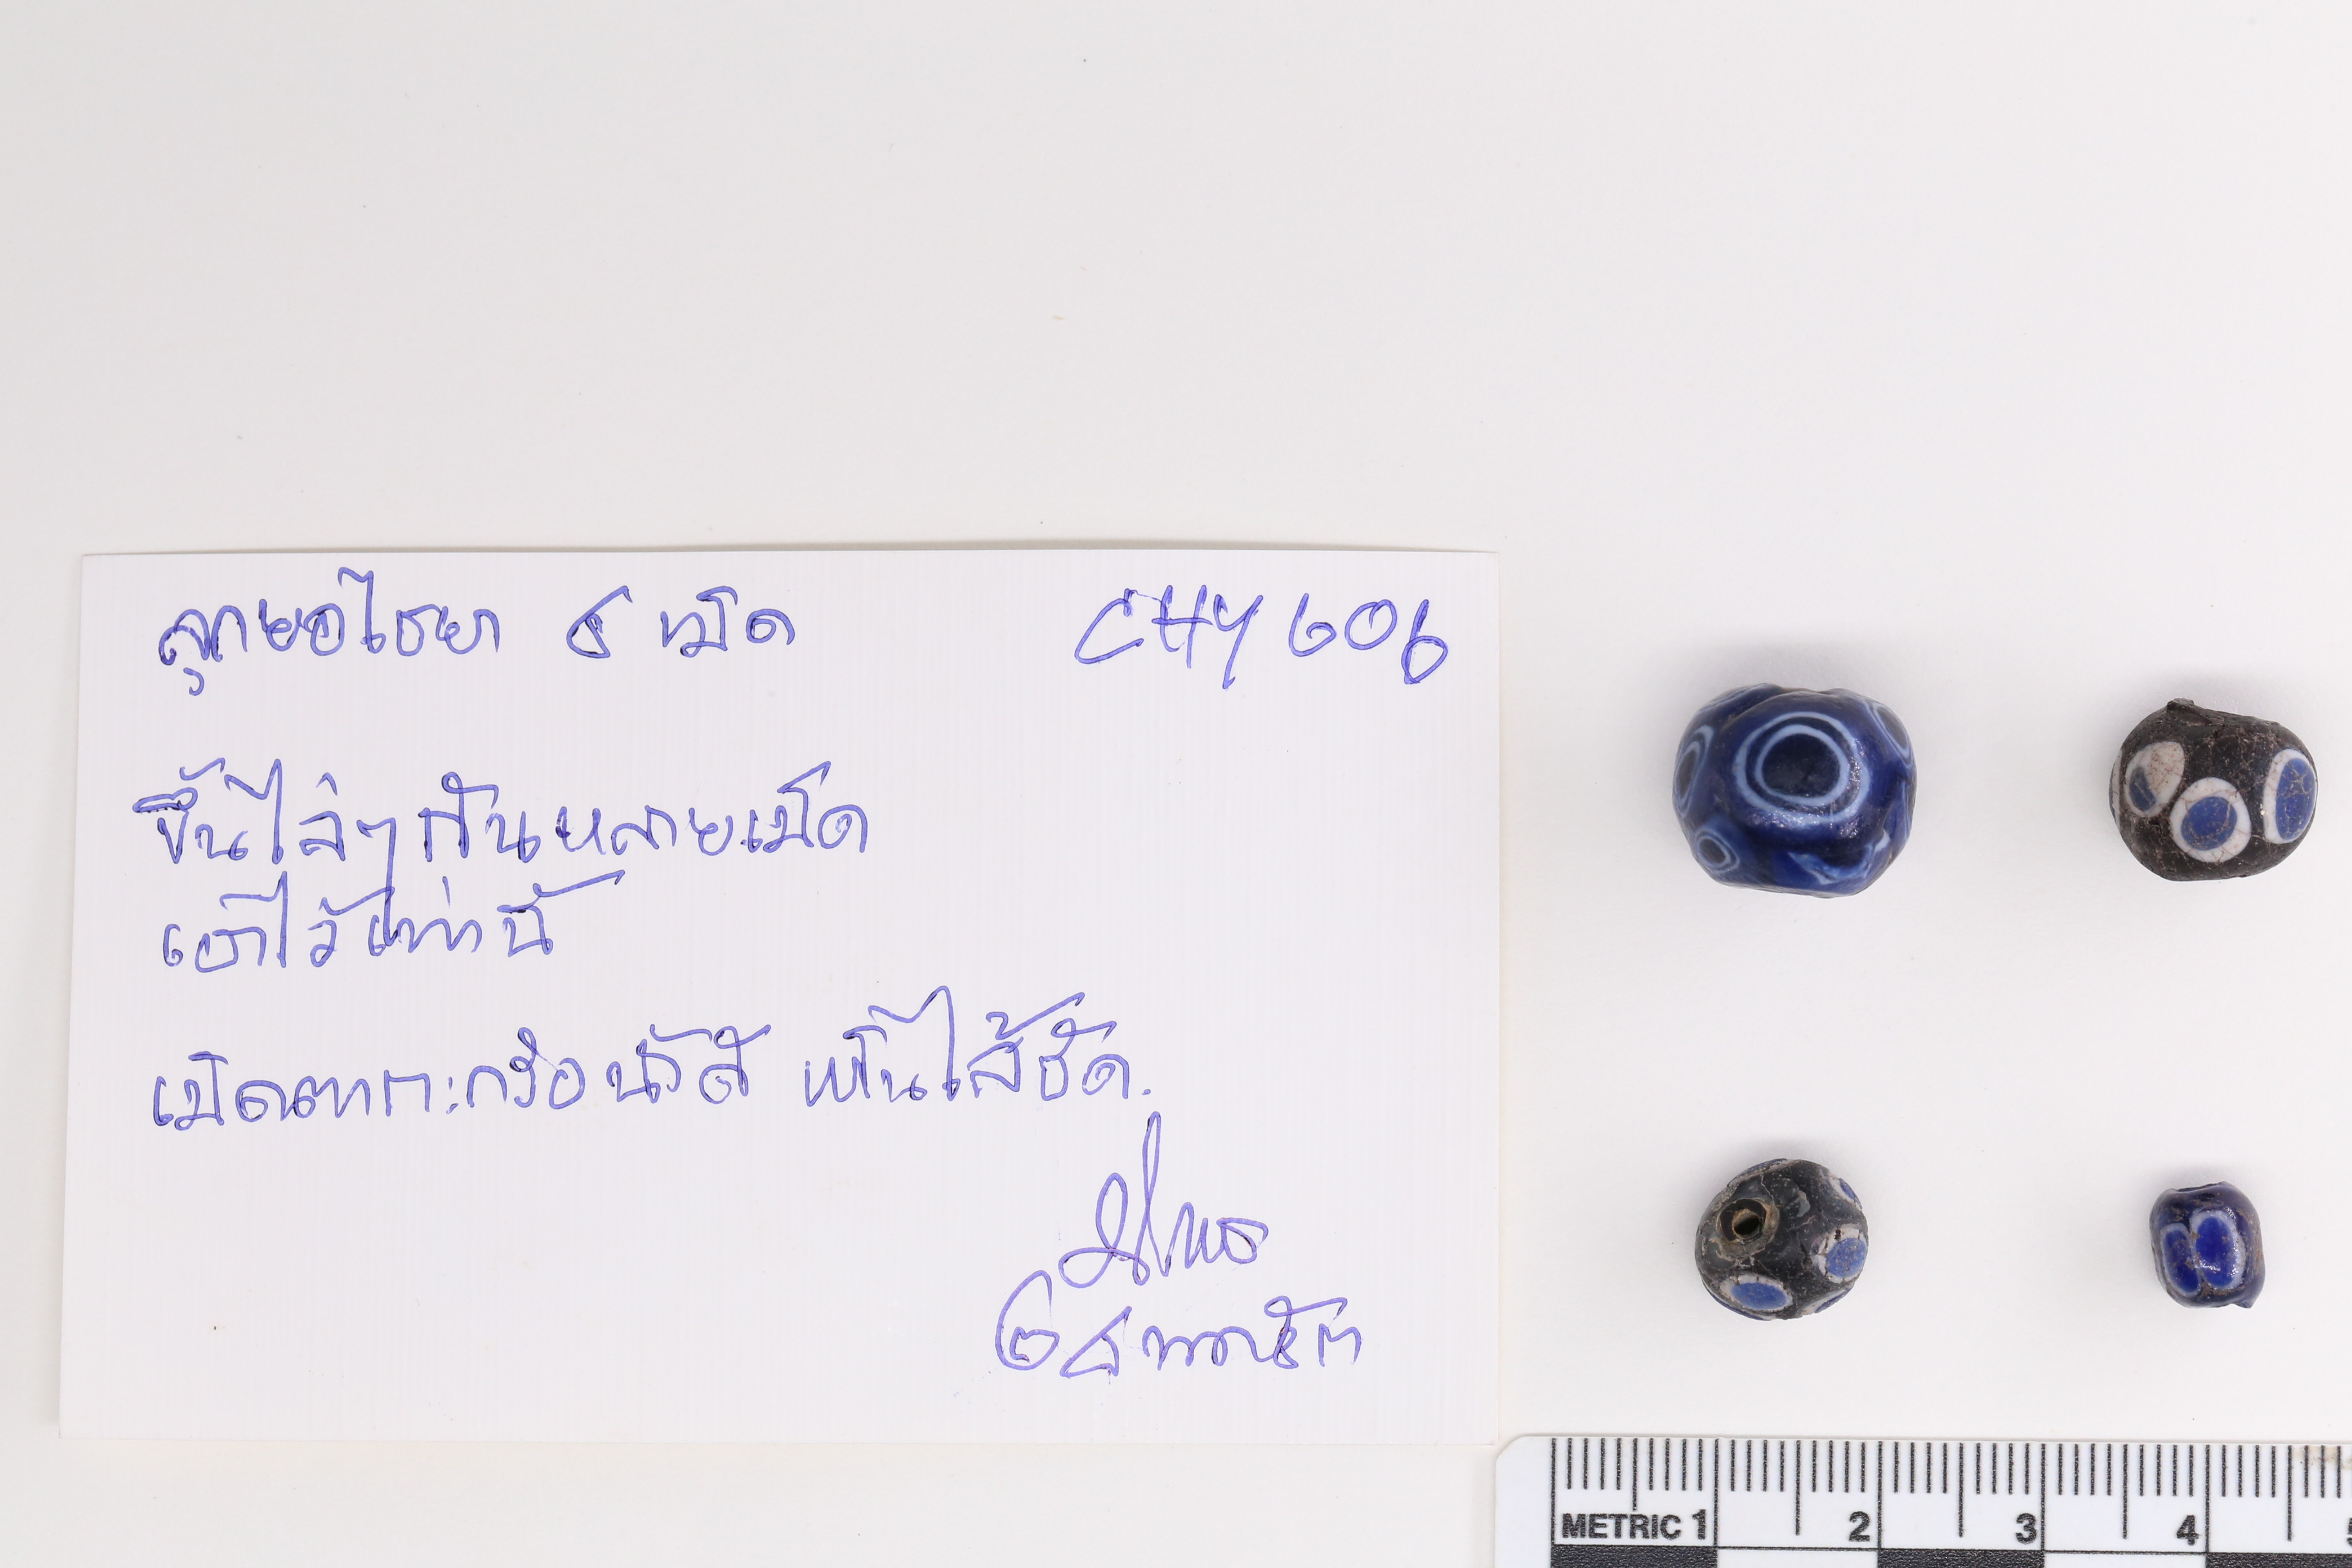 ลูกยอไชยา ๕ เม็ด CHY 606
ขึ้นไล่ๆ กันหลายเม็ด
เอาไว้เท่านี้
เม็ดตาตะกร้อ เห็นไส้ชัด.
METRIC 1 2 3 4